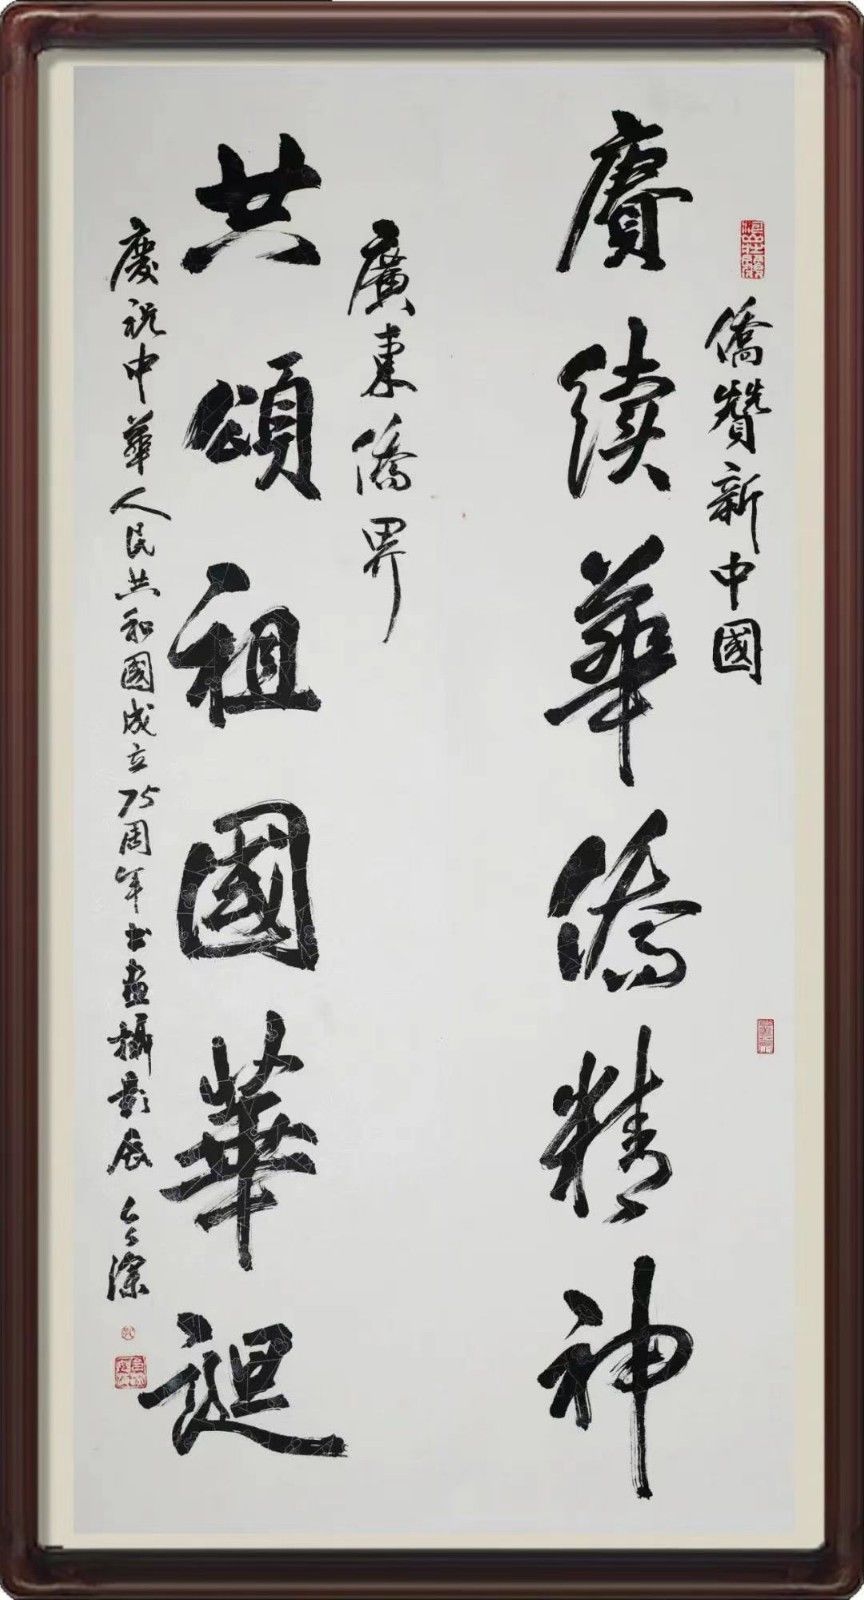 僑贊新中國
賡续華僑精神
共頌祖國華誕
廣東僑界
慶祝中華人民共和國成立75周年书畫攝影展